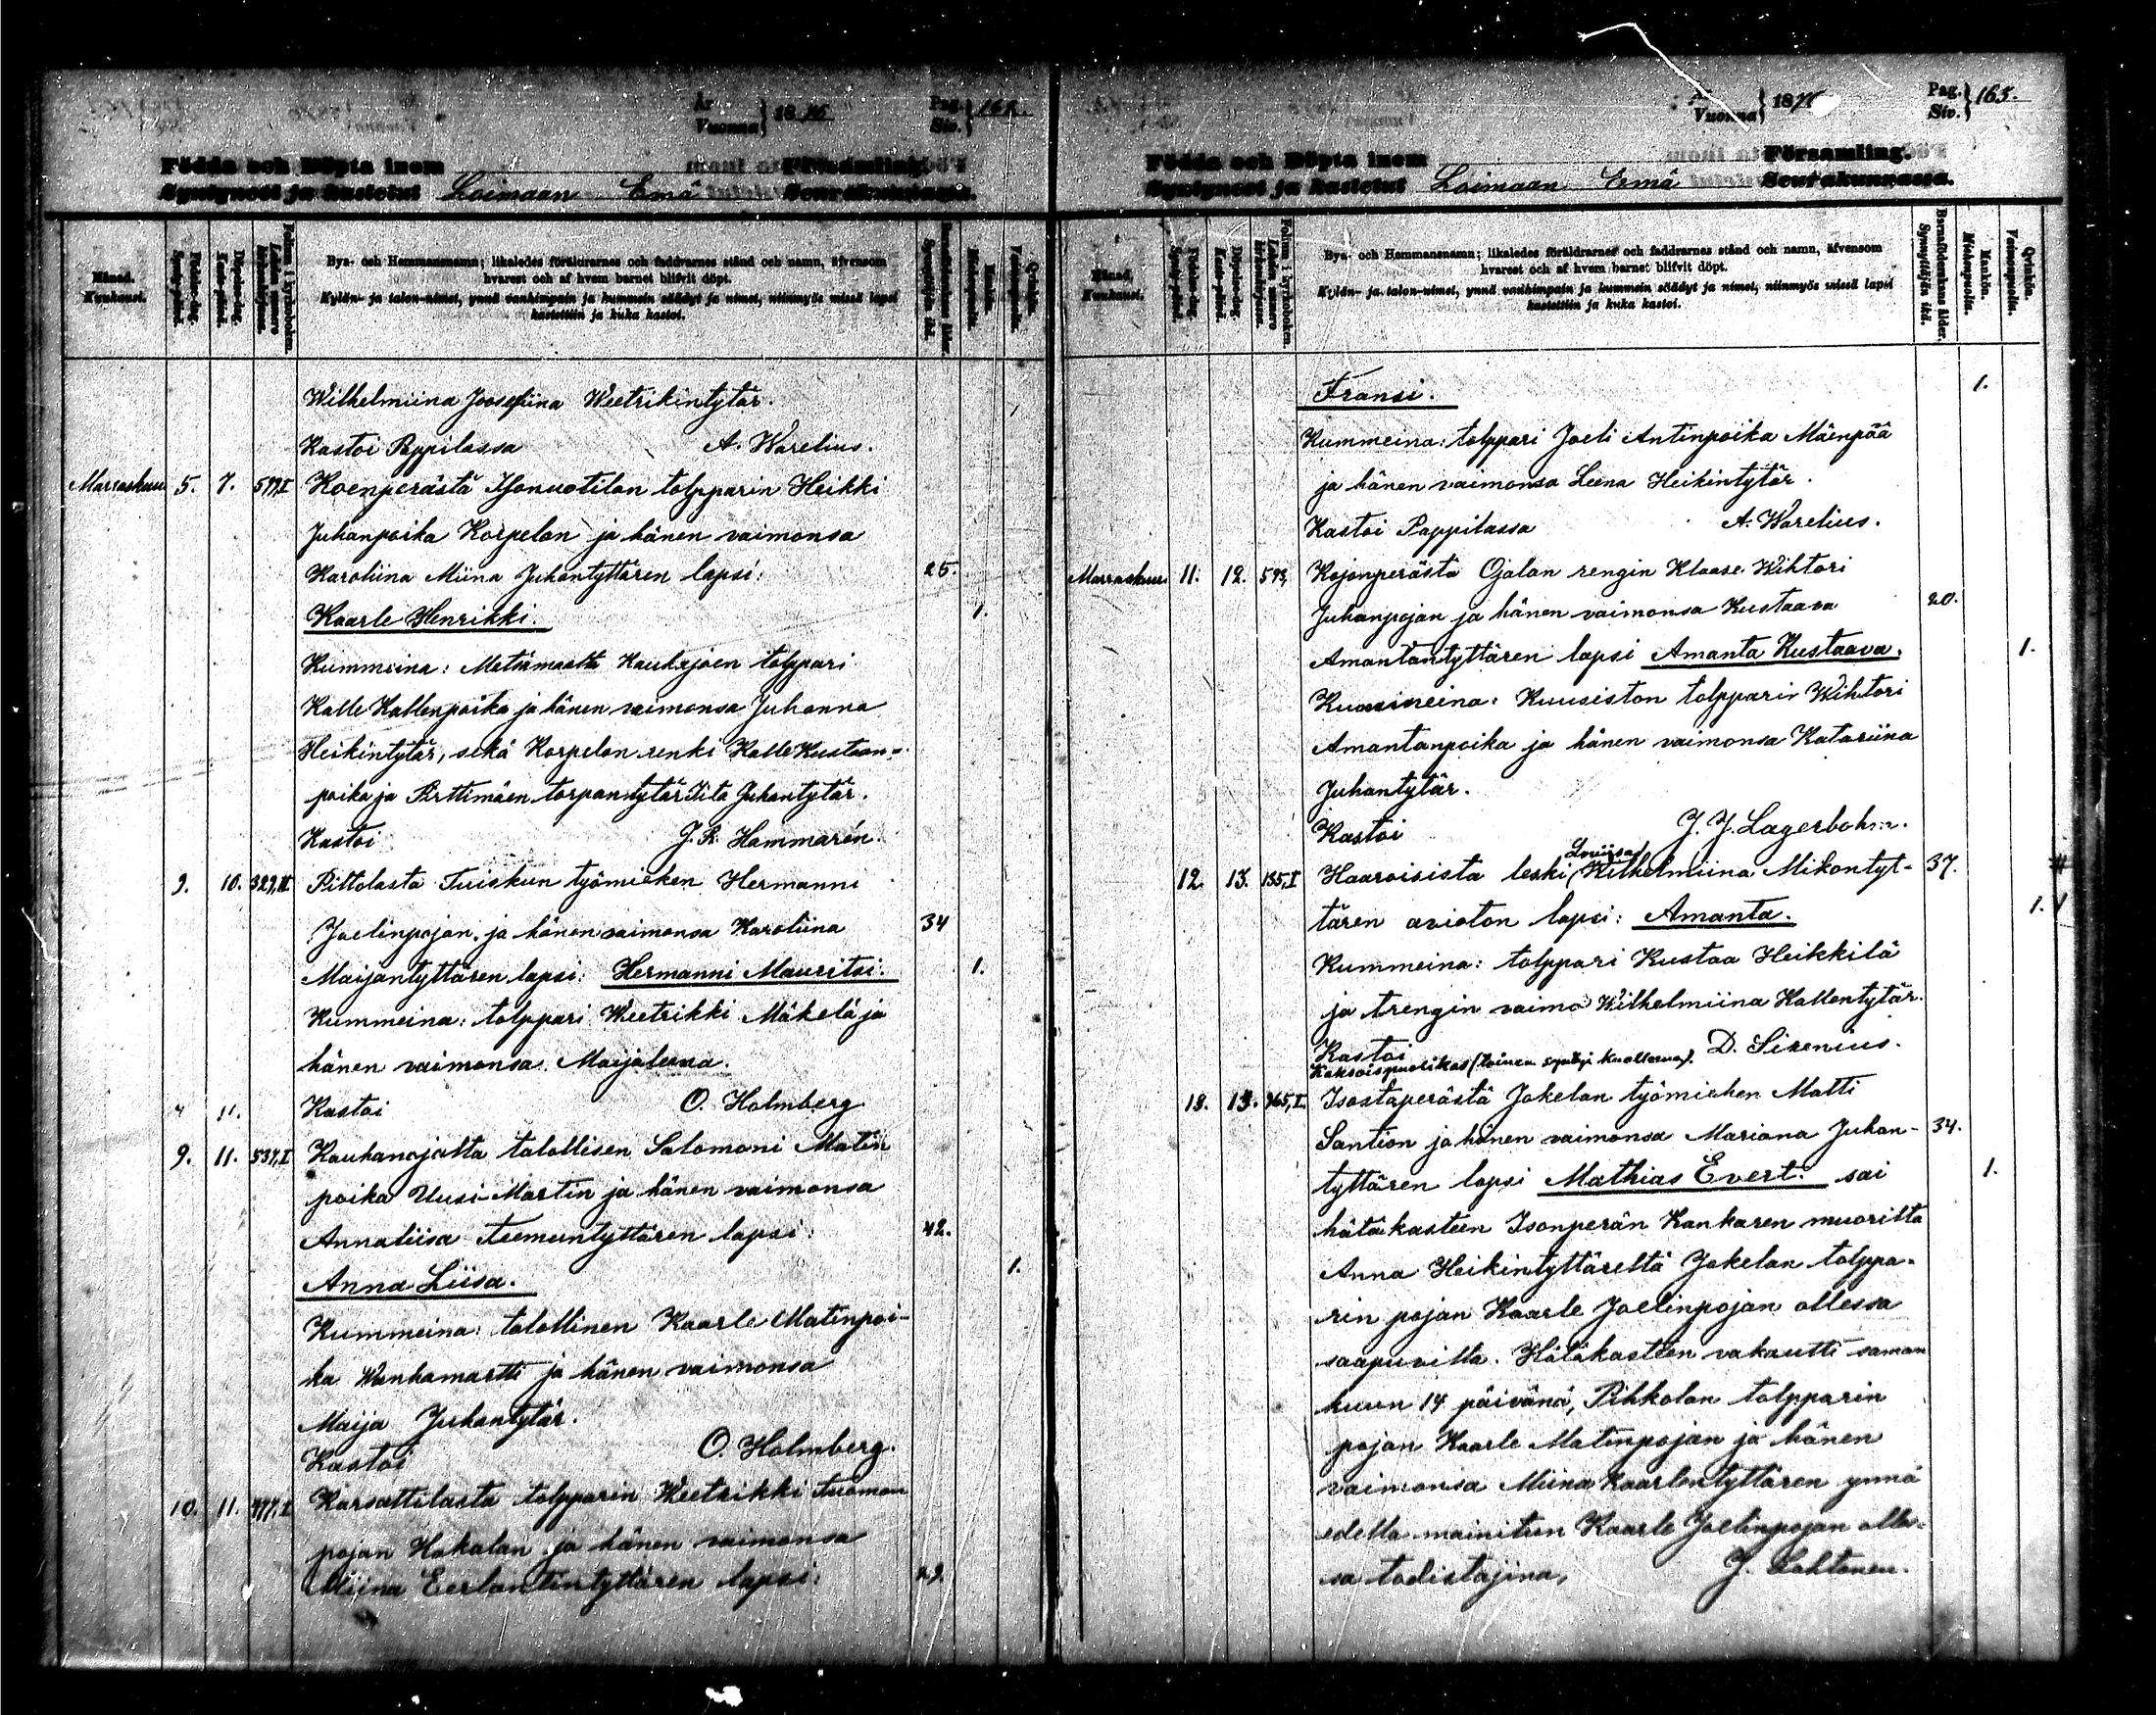 År
Vuonna} 1876
Pag.
Siv.}
Födda och Döpta inom Församling.
Syntyneet ja kastetut Loimaan Emä Seurakunnassa.
Månad.
Kuukausi.
Födelse-dag.
Synty-päivä.
Döpelse-dag.
Kaste-päivä.
Folium i kyrkoboken.
Lehden numero kirkonkirjassa.
Bys- och Hemmansnamn; likaledes föräldrarnes och faddrarnes stånd och namn, äfvensom
hvarest och af hvem barnet blifvit döpt.
Kylän- ja talon-nimet, ynnä vanhimpain ja kummein säädyt ja nimet, niinmyös missä lapsi
kastettiin ja kuka kastoi.
Barnaföderskans ålder.
Synnyttäjän ikä.
Mankön.
Miehenpuolia.
Qvinkön.
Vaimonpuolia.
Wilhelmiina Joosefiina Weetrikintytär.
Kastoi Pappilassa A. Warelius.
Marraskuu 5. 7. 577,I Koenperästä Isonuotilan tolpparin Heikki
Juhanpoika Korpelan ja hänen vaimonsa
Karoliina Miina Juhantyttären lapsi: 25.
Kaarle Henrikki. 1.
Kummeina: Metsämaalta Kauhajoen tolppari
Kalle Kallenpoika ja hänen vaimonsa Juhanna
Heikintytär, sekä Korpelan renki Kalle Kustaan-
poika ja Pirttimäen torpantytär Iita Juhantytär.
Kastoi J. R. Hammarén.
9. 10. 329,II Piltolasta Tuiskun työmiehen Hermanni
Joelinpojan ja hänen vaimonsa Karoliina 34
Maijantyttären lapsi: Hermanni Mauritsi. 1.
Kummeina: tolppari Weetrikki Mäkelä ja
hänen vaimonsa Maijaleena.
" 11. Kastoi O. Holmberg
9. 11. 537,I Kauhanojalta talollisen Salomoni Matin
poika Uusi-Martin ja hänen vaimonsa
Annaliisa Tuomentyttären lapsi: 42.
Anna Liisa. 1.
Kummeina: talollinen Kaarle Matinpoi-
ka Wanhamartti ja hänen vaimonsa
Maija Juhantytär.
Kastoi O. Holmberg.
10. 11. 477,I Karsattilasta tolpparin Weetrikki Tuoman
pojan Hakalan ja hänen vaimonsa
Miina Eerlantintyttären lapsi: 29
Vuonna} 187
Pag.
Siv.} 165.
Födda och Döpta inom Församling.
Syntyneet ja kastetut Loimaan Emä Seurakunnassa.
Månad.
Kuukausi.
Födelse-dag.
Synty-päivä.
Döpelse-dag.
Kaste-päivä.
Folium i kyrkoboken.
Lehden numero kirkonkirjassa.
Bys- och Hemmansnamn; likaledes föräldrarnes och faddrarnes stånd och namn, äfvensom
hvarest och af hvem barnet blifvit döpt.
Kylän- ja talon-nimet, ynnä vanhimpain ja kummein säädyt ja nimet, niinmyös missä lapsi
kastettiin ja kuka kastoi.
Barnaföderskans ålder.
Synnyttäjän ikä.
Mankön.
Miehenpuolia.
Qvinkön.
Vaimonpuolia.
Fransi. 1.
Kummeina: tolppari Joeli Antinpoika Mäenpää
ja hänen vaimonsa Leena Heikintytär.
Kastoi Pappilassa A. Warelius.
Marraskuu 11. 12. 593, Kojonperästä Ojalan rengin Klaase Wihtori
Juhanpojan ja hänen vaimonsa Kustaava 20.
Amantantyttären lapsi Amanta Kustaava. 1.
Kummeina: Kuusiston tolpparin Wihtori
Amantanpoika ja hänen vaimonsa Katariina
Juhantytär.
Kastoi J. J. Lagerbohm.
Lovisa
12. 13. 135,I Haaroisista leski Wilhelmiina Mikontyt- 37.
tären avioton lapsi: Amanta. 1.
Kummeina: tolppari Kustaa Heikkilä
ja trengin vaimo Wilhelmiina Kallentytär.
Kastoi D. Sirenius.
Kaksoispuolikas (toinen syntyi kuolleena).
13. 13. 365,I Isostaperästä Jokelan työmiehen Matti
Santion ja hänen vaimonsa Mariana Juhan- 34.
tyttären lapsi Mathias Evert: sai 1.
hätäkasteen Isonperän Kankaren muorilta
Anna Heikintyttäreltä Jokelan tolppa-
rin pojan Kaarle Joelinpojan ollessa
saapuvilla. Hätäkasteen vakautti saman
kuun 14 päivänä, Pihkolan tolpparin
pojan Kaarle Matinpojan ja hänen
vaimonsa Miina Kaarlentyttären ynnä
edellä mainitun Kaarle Joelinpojan olles-
sa todistajina, J. Lahtonen.